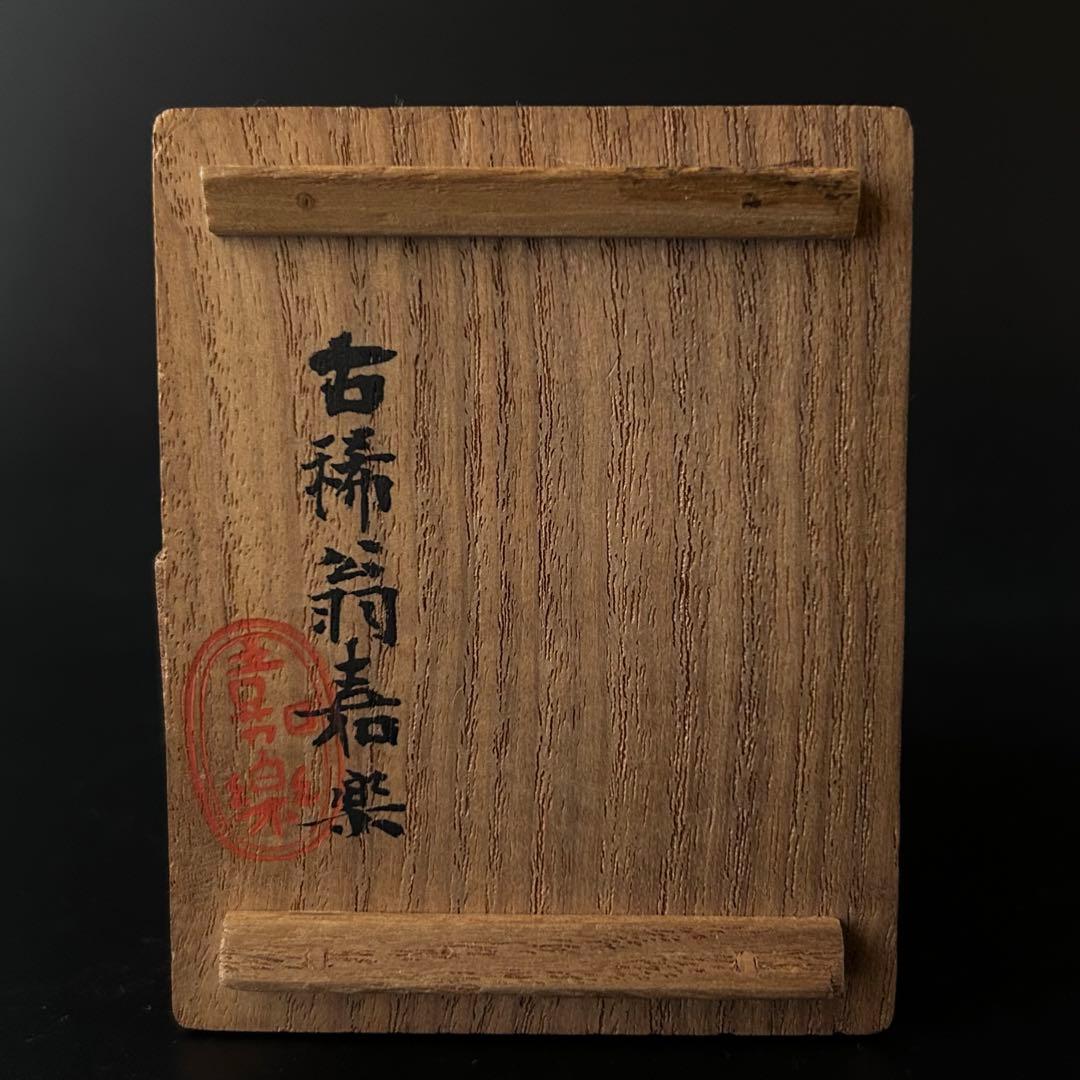 古稀翁嘉楽
嘉樂